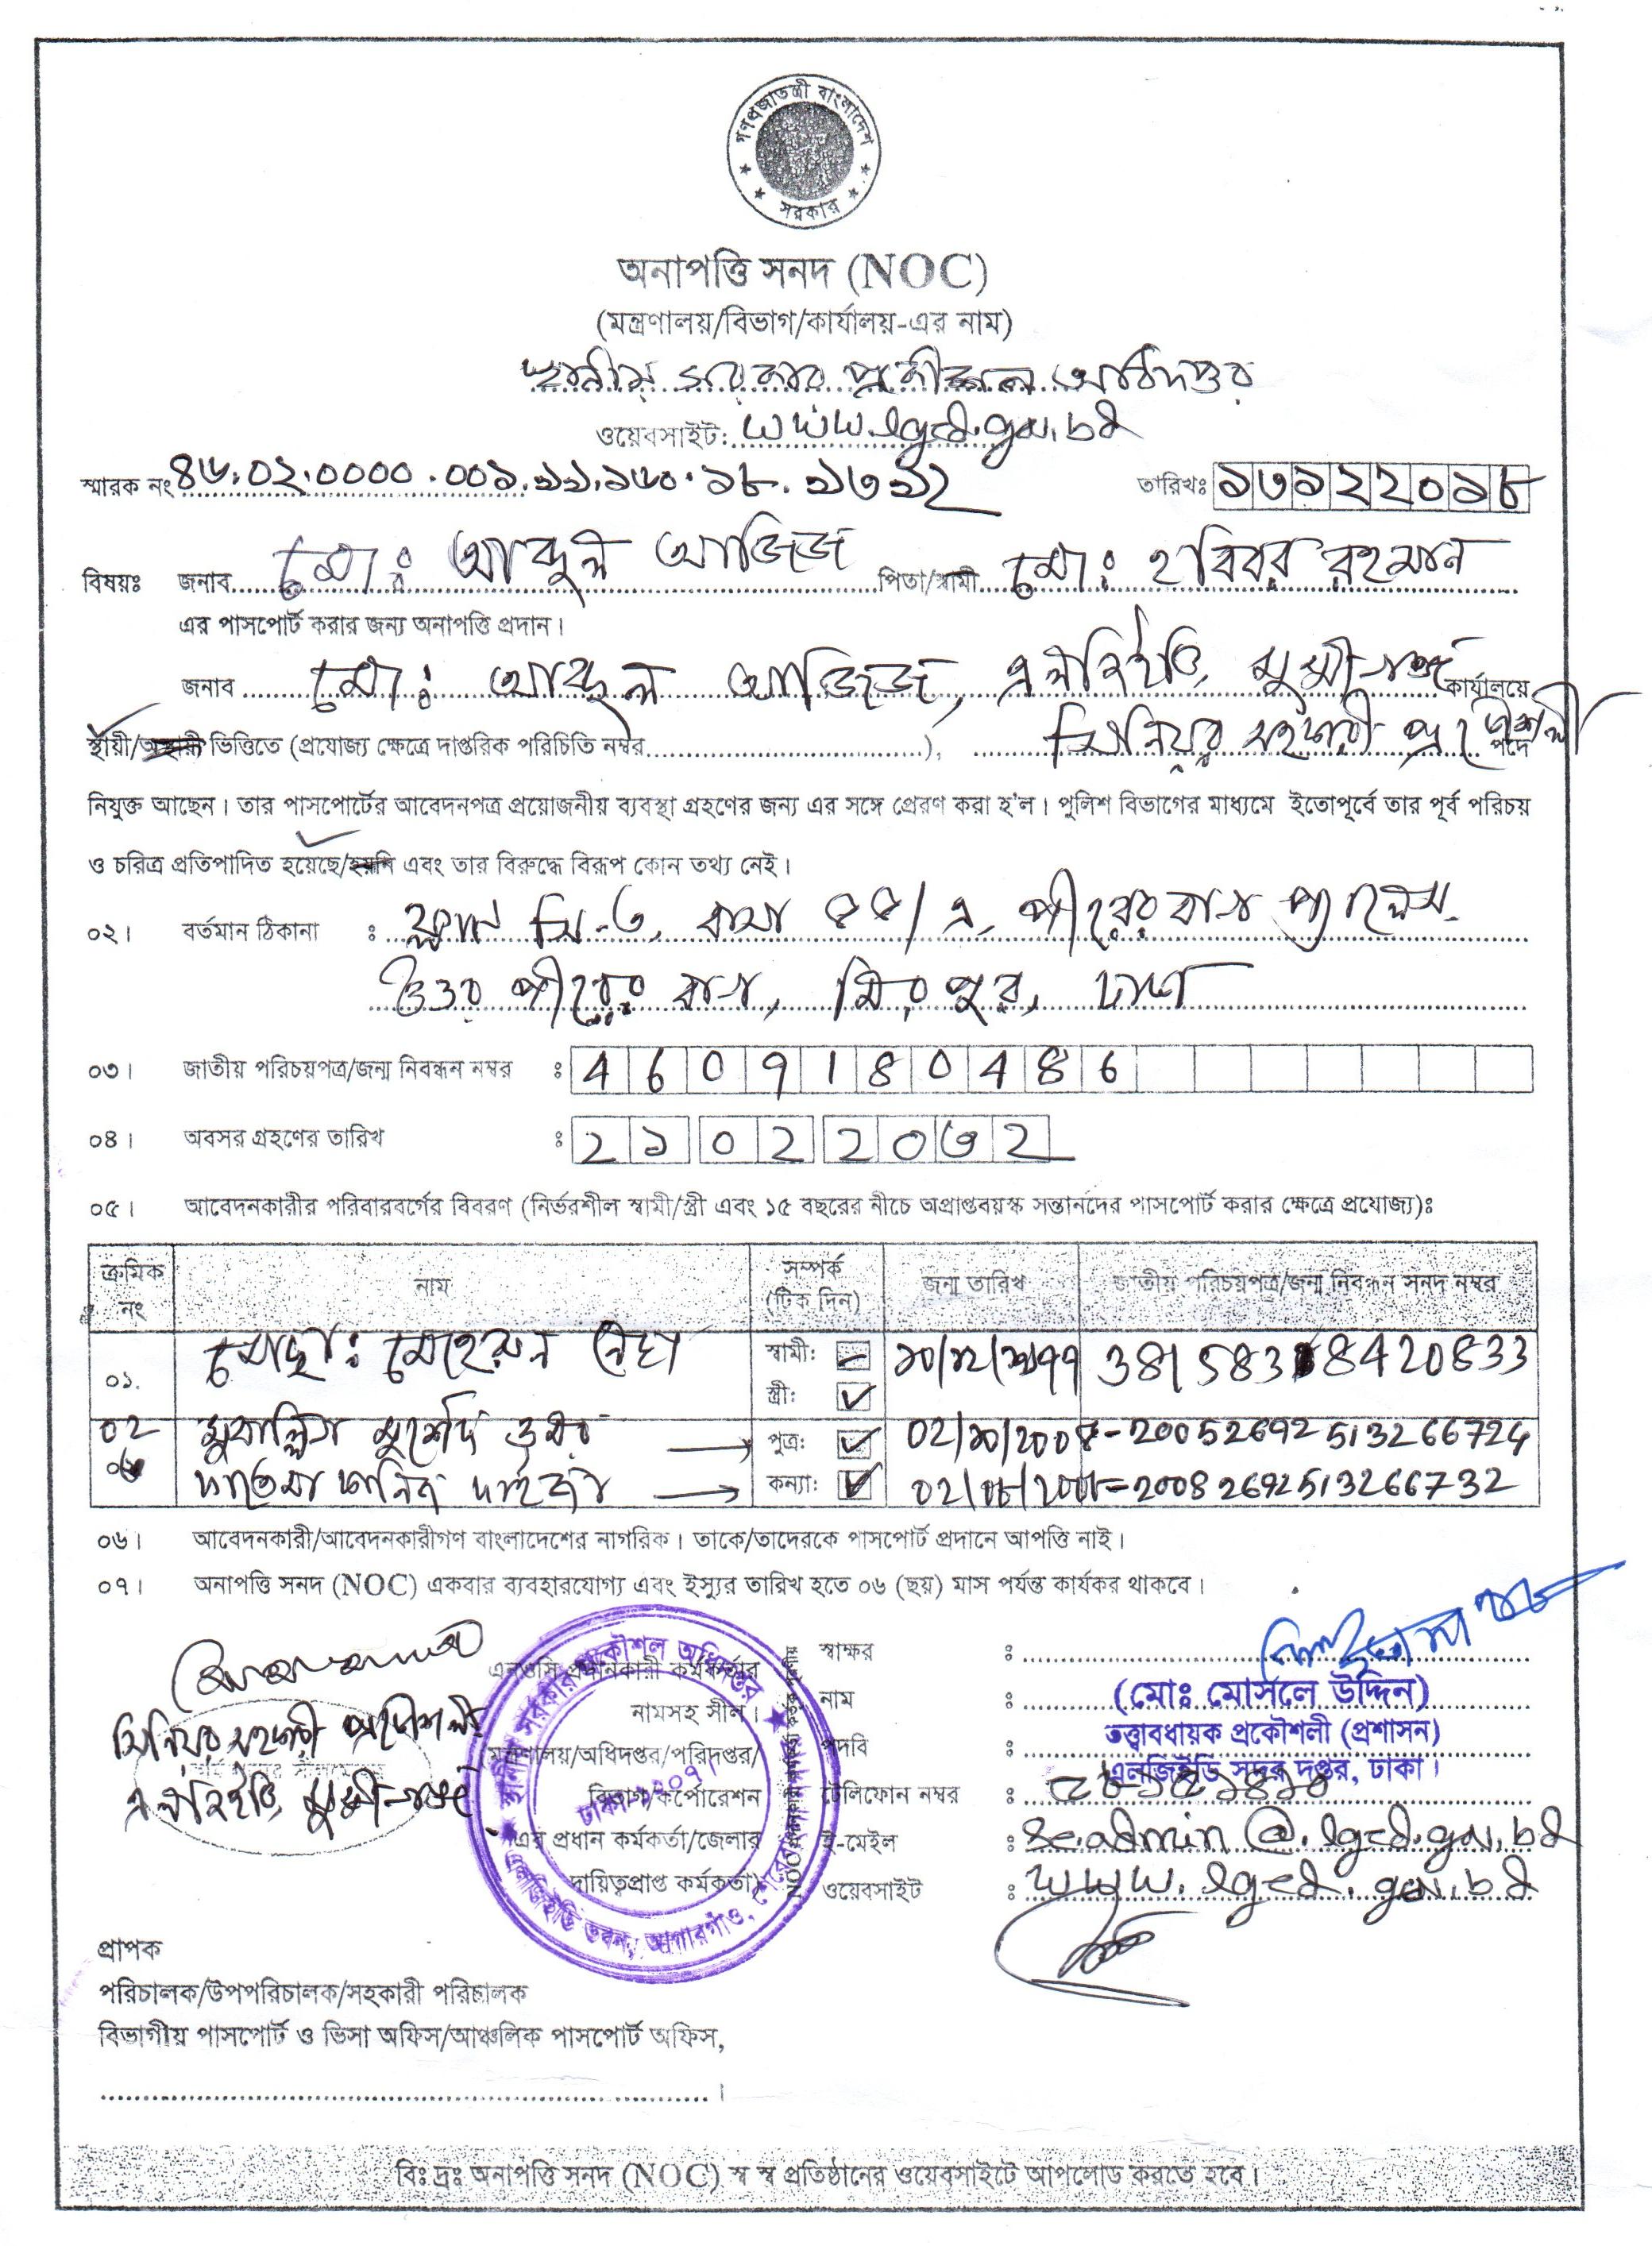 গণপ্রজাতন্ত্রী বাংলাদেশ সরকার
অনাপত্তি সনদ (NOC)
(মন্ত্রণালয়/বিভাগ/কার্যালয়-এর নাম)
স্থানীয় সরকার প্রকৌশল অধিদপ্তর
ওয়েবসাইট: www.lged.gov.bd
স্মারক নং ৪৬.০২.০০০০.০০১.১১.১৬০.১৮.১৩১২ তারিখঃ ১৩১২২০১৮
বিষয়ঃ জনাব মোঃ আব্দুল আজিজ পিতা/স্বামী মোঃ হবিবর রহমান
এর পাসপোর্ট করার জন্য অনাপত্তি প্রদান।
জনাব মোঃ আব্দুল আজিজ, এলজিইডি, মুন্সীগঞ্জ কার্যালয়ে
স্থায়ী/অস্থায়ী ভিত্তিতে (প্রযোজ্য ক্ষেত্রে দাপ্তরিক পরিচিতি নম্বর..............................), সিনিয়র সহকারী প্রকৌশলী পদে
নিযুক্ত আছেন। তার পাসপোর্টের আবেদনপত্র প্রয়োজনীয় ব্যবস্থা গ্রহণের জন্য এর সঙ্গে প্রেরণ করা হ'ল। পুলিশ বিভাগের মাধ্যমে ইতোপূর্বে তার পূর্ব পরিচয়
ও চরিত্র প্রতিপাদিত হয়েছে/হয়নি এবং তার বিরুদ্ধে বিরূপ কোন তথ্য নেই।
০২। বর্তমান ঠিকানা : ফ্ল্যাট সি-৩, বাসা ৫৫/এ, পীরেরবাগ প্যালেস,
উত্তর পীরের বাগ, মিরপুর, ঢাকা
০৩। জাতীয় পরিচয়পত্র/জন্ম নিবন্ধন নম্বর : 4609180486
০৪। অবসর গ্রহণের তারিখ : ২১০২২০৩২
০৫। আবেদনকারীর পরিবারবর্গের বিবরণ (নির্ভরশীল স্বামী/স্ত্রী এবং ১৫ বছরের নীচে অপ্রাপ্তবয়স্ক সন্তানদের পাসপোর্ট করার ক্ষেত্রে প্রযোজ্য)ঃ
ক্রমিক নং নাম সম্পর্ক (টিক দিন) জন্ম তারিখ জাতীয় পরিচয়পত্র/জন্ম নিবন্ধন সনদ নম্বর
০১. মোছাঃ মেহেরুন নেছা স্বামী: স্ত্রী:
০২ পুত্র: 20052692513266724
০৩ কন্যা: 20082692513266732
০৬। আবেদনকারী/আবেদনকারীগণ বাংলাদেশের নাগরিক। তাকে/তাদেরকে পাসপোর্ট প্রদানে আপত্তি নাই।
০৭। অনাপত্তি সনদ (NOC) একবার ব্যবহারযোগ্য এবং ইস্যুর তারিখ হতে ০৬ (ছয়) মাস পর্যন্ত কার্যকর থাকবে।
সিনিয়র সহকারী প্রকৌশলী
এলজিইডি, মুন্সীগঞ্জ
এনওসি প্রদানকারী কর্মকর্তার
নামসহ সীল।
মন্ত্রণালয়/অধিদপ্তর/পরিদপ্তর/
বিভাগ/কর্পোরেশন
এর প্রধান কর্মকর্তা/জেলার
দায়িত্বপ্রাপ্ত কর্মকর্তা)
স্থানীয় সরকার প্রকৌশল অধিদপ্তর
এলজিইডি ভবন, আগারগাঁও,
স্বাক্ষর :
নাম : (মোঃ মোর্সলে উদ্দিন)
পদবি : তত্ত্বাবধায়ক প্রকৌশলী (প্রশাসন)
এলজিইডি সদর দপ্তর, ঢাকা।
টেলিফোন নম্বর :
ই-মেইল : se.admin@lged.gov.bd
ওয়েবসাইট : www.lged.gov.bd
প্রাপক
পরিচালক/উপপরিচালক/সহকারী পরিচালক
বিভাগীয় পাসপোর্ট ও ভিসা অফিস/আঞ্চলিক পাসপোর্ট অফিস,
..............................।
বিঃ দ্রঃ অনাপত্তি সনদ (NOC) স্ব স্ব প্রতিষ্ঠানের ওয়েবসাইটে আপলোড করতে হবে।